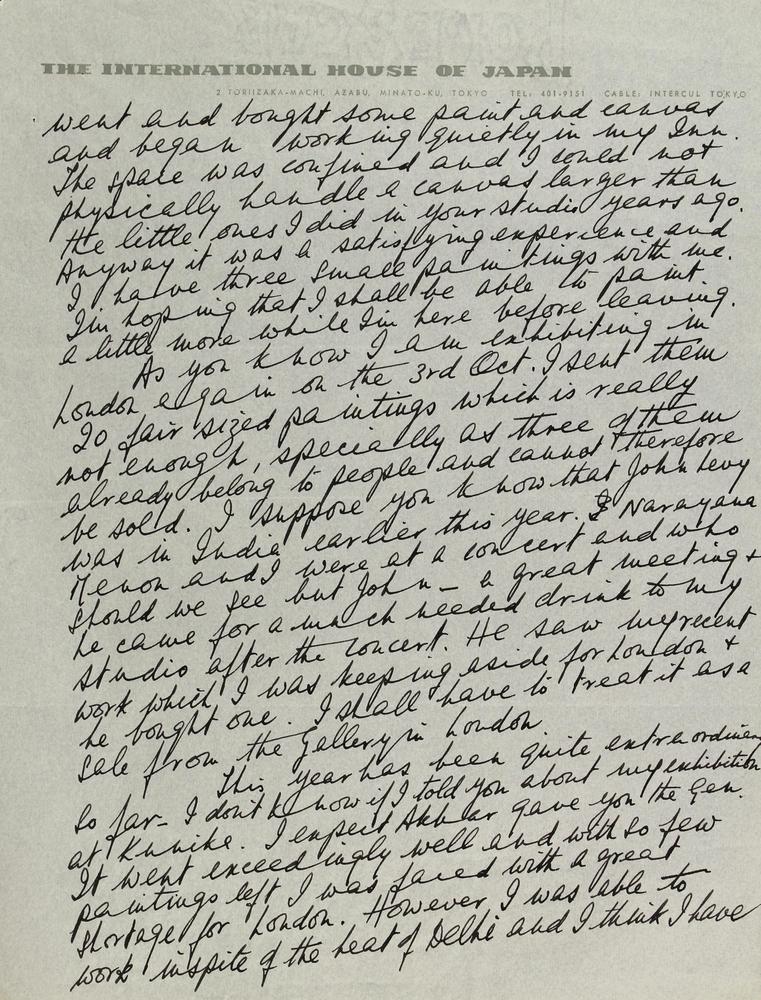 THE INTERNATIONAL HOUSE OF JAPAN
2 TORIIZAKA-MACHI, AZABU, MINATO-KU, TOKYO TEL: 401-9151 CABLE: INTERCUL TOKYO
went and bought some paint and canvas
and began working quietly in my Inn.
The space was confined and I could not
physically handle a canvas larger than
the little ones I did in your studio years ago.
Anyway it was a satisfying experience and
I have three small paintings with me.
I'm hoping that I shall be able to paint
a little more while I'm here before leaving.
As you know I am exhibiting in
London again on the 3rd Oct. I sent them
20 fair sized paintings which is really
not enough, specially as three of them
already belong to people and cannot therefore
be sold. I suppose you know that John Levy
was in India earlier this year. Narayana
Menon and I were at a concert and who
should we see but John – a great meeting +
he came for a much needed drink to my
studio after the concert. He saw my recent
work which I was keeping aside for London +
he bought one. I shall have to treat it as a
sale from the Gallery in London
This year has been quite extraordinary
so far – I don't know if I told you about my exhibition
at Kunike. I expect Akbar gave you the Gen.
It went exceedingly well and with so few
paintings left I was faced with a great
shortage for London. However I was able to
work inspite of the heat of Delhi and I think I have